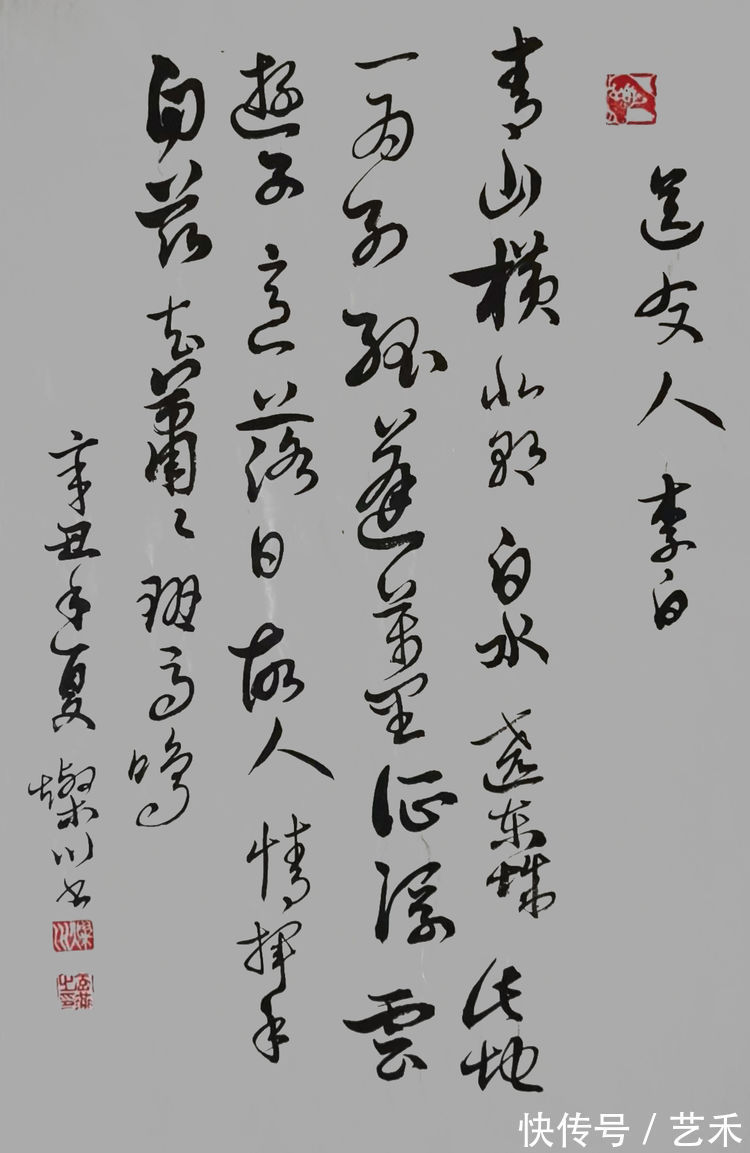 送友人 李白
青山横北郭白水遶东城此地
一为别孤蓬萬里征浮雲
遊子意落日故人情揮手
自兹去蕭々班马鳴
辛丑年夏 燦川书
快传号 / 艺禾